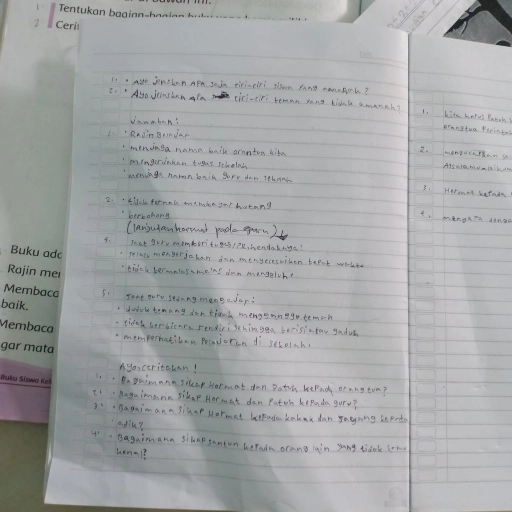 Tentukan bagian-bagian
Ceri
1. • Ayo jelaskan apa saja ciri-ciri siswa yang
2. • Ayo jelaskan apa ciri-ciri teman yang tidak amanah?
Jawaban:
1. • Rajin Belajar
• menjaga nama baik orantua kita
• mengerjakan tugas sekolah
• menjaga nama baik guru dan sekolah
2. • tidak pernah membayar hutang
• berbohong
(lanjutan hormat pada guru)
4. saat guru memberi tugas/PR, hendaknya:
• mengerjakan dan menyelesaikan tepat waktu
• tidak bermalas-malas dan mengeluh.
5. saat guru sedang mengajar:
• duduk tenang dan tidak mengganggu teman
• tidak berbicara sendiri sehingga berisi atau gaduh
• memperhatikan Pelajaran di sekolah.
Ayo ceritakan!
1. • Bagaimana sikap hormat dan Patuh kepada orang tua?
2. • Bagaimana sikap Hormat dan Patuh kepada guru?
3. • Bagaimana sikap Hormat kepada kakak dan sayang kepada
adik?
4. • Bagaimana sikap santun kepada orang lain yang tidak
kenal?
1. kita harus Patuh
orangtua Perintah
2. mengucapkan
3. Hormat kepada
4.
Buku
Rajin
Membaca
baik.
Membaca
gar mata
Buku Siswa Kel